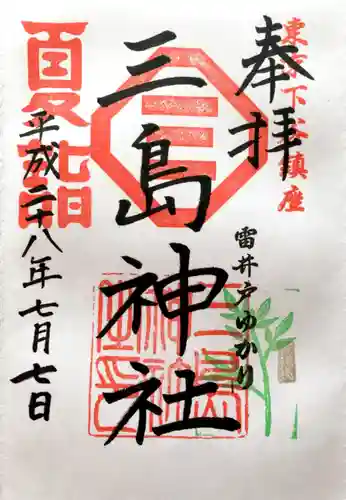 東京下谷鎮座
奉拝
三島神社
雷井戸ゆかり
夏詣
平成二十八年七月七日